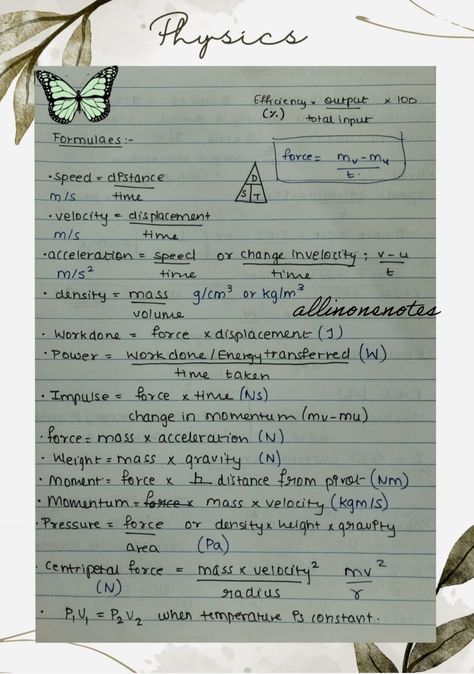 Physics
Efficiency = output × 100
(%) total input
Formulaes:-
force = mv - mu
t.
• speed = distance
m/s time
D
S T
• velocity = displacement
m/s time
• acceleration = speed or change in velocity ; v - u
m/s² time time t
• density = mass g/cm³ or kg/m³
volume
allinonenotes
• Workdone = force × displacement (J)
• Power = work done / Energy transferred (W)
time taken
• Impulse = force × time (Ns)
change in momentum (mv - mu)
• force = mass × acceleration (N)
• Weight = mass × gravity (N)
• Moment = force × h distance from pivot (Nm)
• Momentum = force × mass × velocity (kgm/s)
• Pressure = force or density × height × gravity
area (Pa)
• Centripetal force = mass × velocity² mv²
(N) radius r
• P₁V₁ = P₂V₂ when temperature is constant.